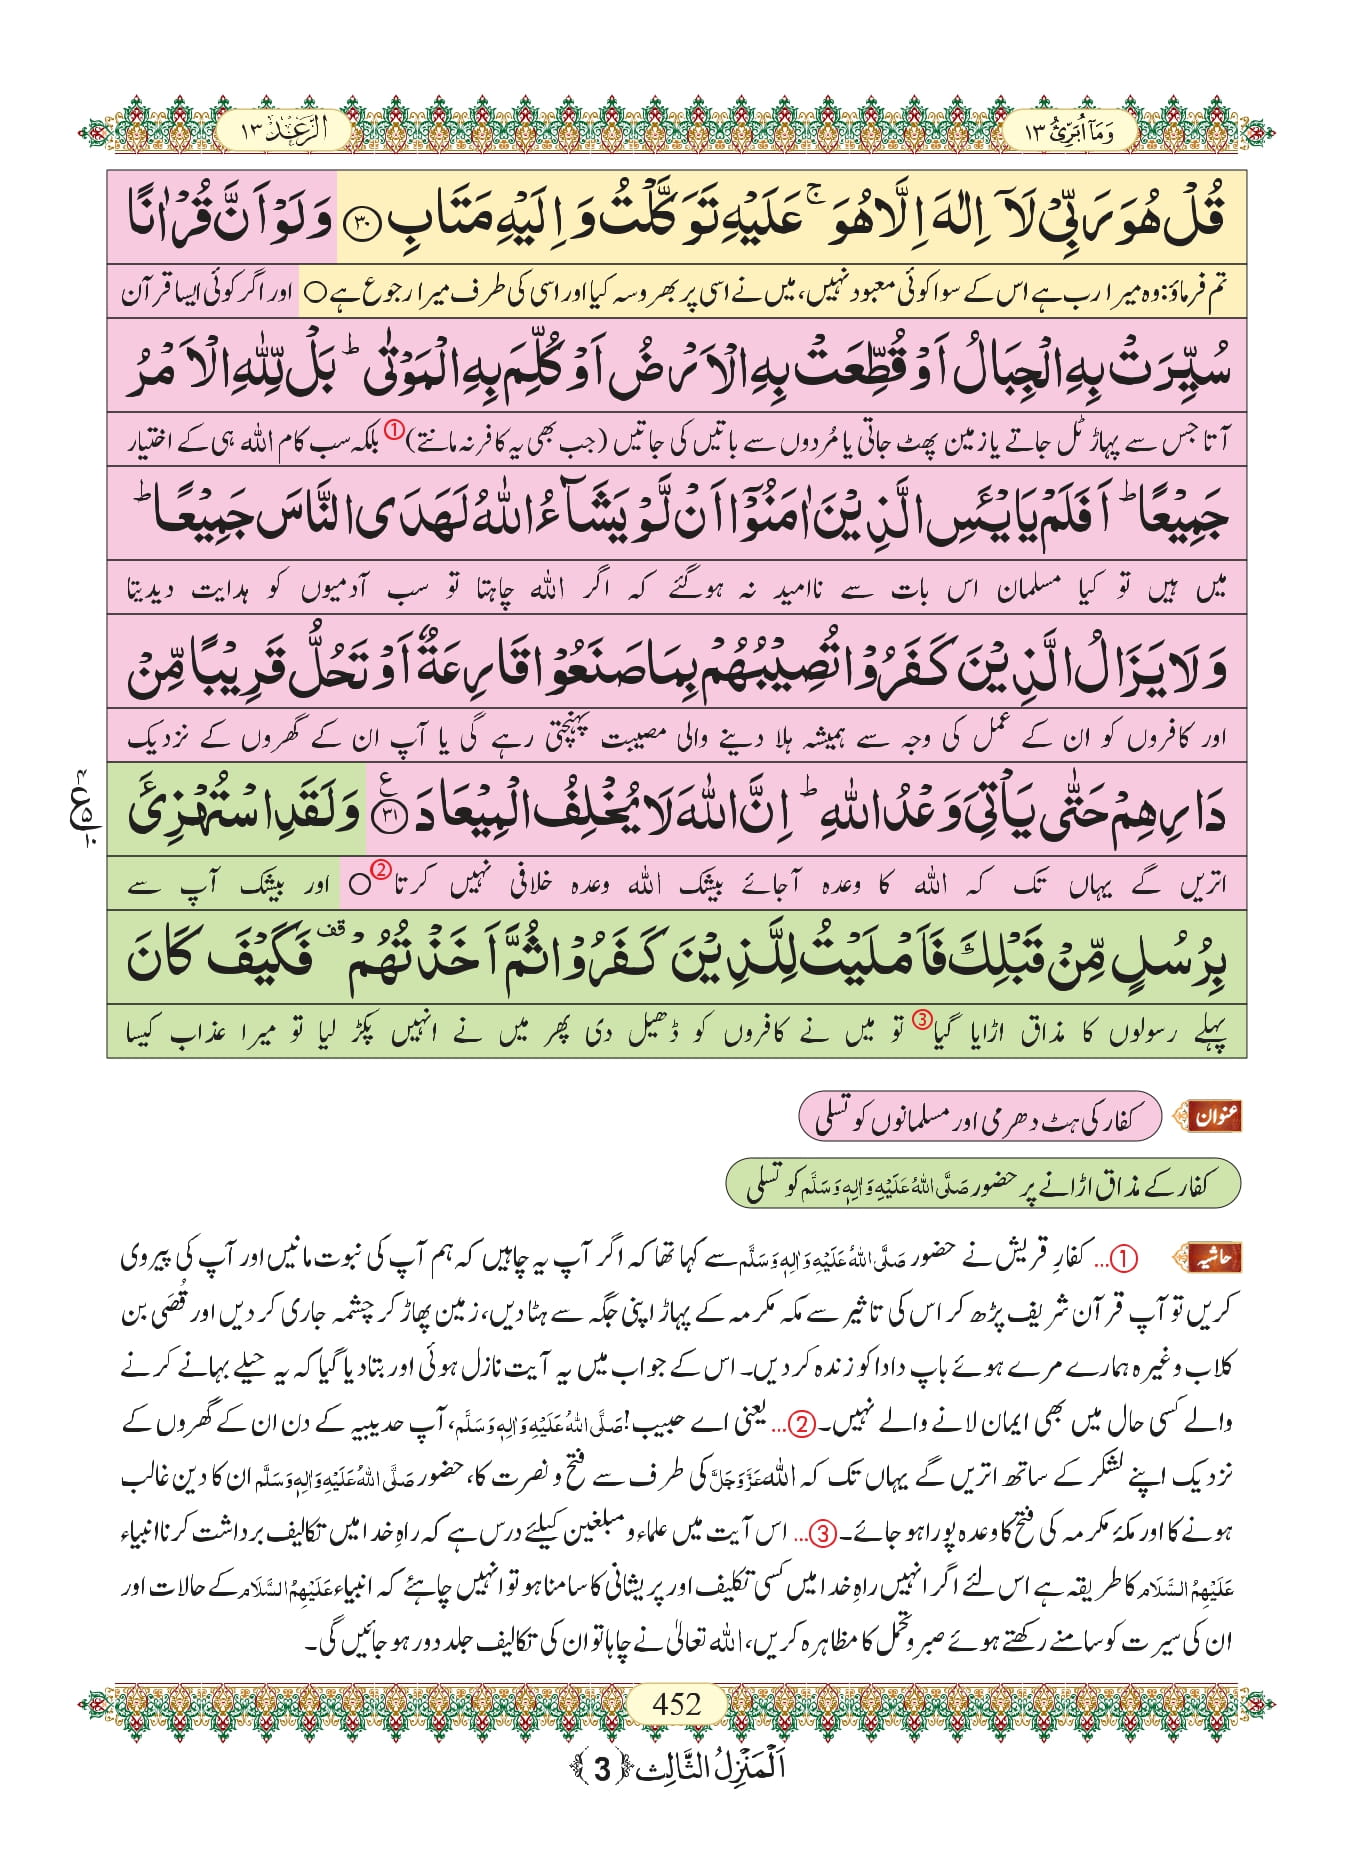 وَمَاۤ اُبَرِّئُ ١٣
اَلرَّعْد ١٣
قُلْ هُوَ رَبِّیْ لَاۤ اِلٰهَ اِلَّا هُوَ ۚ عَلَیْهِ تَوَكَّلْتُ وَ اِلَیْهِ مَتَابِ ﴿۳۰﴾ وَ لَوْ اَنَّ قُرْاٰنًا
تم فرماؤ: وہ میرا رب ہے اس کے سوا کوئی معبود نہیں، میں نے اسی پر بھروسہ کیا اور اسی کی طرف میرا رجوع ہے ○ اور اگر کوئی ایسا قرآن
سُیِّرَتْ بِهِ الْجِبَالُ اَوْ قُطِّعَتْ بِهِ الْاَرْضُ اَوْ كُلِّمَ بِهِ الْمَوْتٰى ؕ بَلْ لِّلّٰهِ الْاَمْرُ
آتا جس سے پہاڑ ٹل جاتے یا زمین پھٹ جاتی یا مُردوں سے باتیں کی جاتیں (جب بھی یہ کافر نہ مانتے) ① بلکہ سب کام اللہ ہی کے اختیار
جَمِیْعًا ؕ اَفَلَمْ یَایْـَٔسِ الَّذِیْنَ اٰمَنُوْۤا اَنْ لَّوْ یَشَآءُ اللّٰهُ لَهَدَی النَّاسَ جَمِیْعًا ؕ
میں ہیں تو کیا مسلمان اس بات سے ناامید نہ ہوگئے کہ اگر اللہ چاہتا تو سب آدمیوں کو ہدایت دیدیتا
وَ لَا یَزَالُ الَّذِیْنَ كَفَرُوْا تُصِیْبُهُمْ بِمَا صَنَعُوْا قَارِعَةٌ اَوْ تَحُلُّ قَرِیْبًا مِّنْ
اور کافروں کو ان کے عمل کی وجہ سے ہمیشہ ہلا دینے والی مصیبت پہنچتی رہے گی یا آپ ان کے گھروں کے نزدیک
دَارِهِمْ حَتّٰى یَاْتِیَ وَعْدُ اللّٰهِ ؕ اِنَّ اللّٰهَ لَا یُخْلِفُ الْمِیْعَادَ ﴿۳۱﴾ ع وَ لَقَدِ اسْتُهْزِئَ
ع ۴ ۵ ۱۰
اتریں گے یہاں تک کہ اللہ کا وعدہ آجائے بیشک اللہ وعدہ خلافی نہیں کرتا ② ○ اور بیشک آپ سے
بِرُسُلٍ مِّنْ قَبْلِكَ فَاَمْلَیْتُ لِلَّذِیْنَ كَفَرُوْا ثُمَّ اَخَذْتُهُمْ قف فَكَیْفَ كَانَ
پہلے رسولوں کا مذاق اڑایا گیا ③ تو میں نے کافروں کو ڈھیل دی پھر میں نے انہیں پکڑ لیا تو میرا عذاب کیسا
عنوان کفار کی ہٹ دھرمی اور مسلمانوں کو تسلی
کفار کے مذاق اڑانے پر حضور صَلَّی اللهُ عَلَیْهِ وَاٰلِهٖ وَسَلَّم کو تسلی
حاشیہ ①... کفارِ قریش نے حضور صَلَّی اللهُ عَلَیْهِ وَاٰلِهٖ وَسَلَّم سے کہا تھا کہ اگر آپ یہ چاہیں کہ ہم آپ کی نبوت مانیں اور آپ کی پیروی
کریں تو آپ قرآن شریف پڑھ کر اس کی تاثیر سے مکہ مکرمہ کے پہاڑ اپنی جگہ سے ہٹا دیں، زمین پھاڑ کر چشمہ جاری کر دیں اور قُصَی بن
کلاب وغیرہ ہمارے مرے ہوئے باپ دادا کو زندہ کر دیں۔ اس کے جواب میں یہ آیت نازل ہوئی اور بتا دیا گیا کہ یہ حیلے بہانے کرنے
والے کسی حال میں بھی ایمان لانے والے نہیں۔ ②... یعنی اے حبیب! صَلَّی اللهُ عَلَیْهِ وَاٰلِهٖ وَسَلَّم، آپ حدیبیہ کے دن ان کے گھروں کے
نزدیک اپنے لشکر کے ساتھ اتریں گے یہاں تک کہ اللہ عَزَّوَجَلَّ کی طرف سے فتح و نصرت کا، حضور صَلَّی اللهُ عَلَیْهِ وَاٰلِهٖ وَسَلَّم ان کا دین غالب
ہونے کا اور مکۂ مکرمہ کی فتح کا وعدہ پورا ہو جائے۔ ③... اس آیت میں علماء و مبلغین کیلئے درس ہے کہ راہِ خدا میں تکالیف برداشت کرنا انبیاء
عَلَیْهِمُ السَّلَام کا طریقہ ہے اس لئے اگر انہیں راہِ خدا میں کسی تکلیف اور پریشانی کا سامنا ہو تو انہیں چاہئے کہ انبیاء عَلَیْهِمُ السَّلَام کے حالات اور
ان کی سیرت کو سامنے رکھتے ہوئے صبر و تحمل کا مظاہرہ کریں، اللہ تعالیٰ نے چاہا تو ان کی تکالیف جلد دور ہو جائیں گی۔
452
اَلْمَنْزِلُ الثَّالِث ﴿3﴾